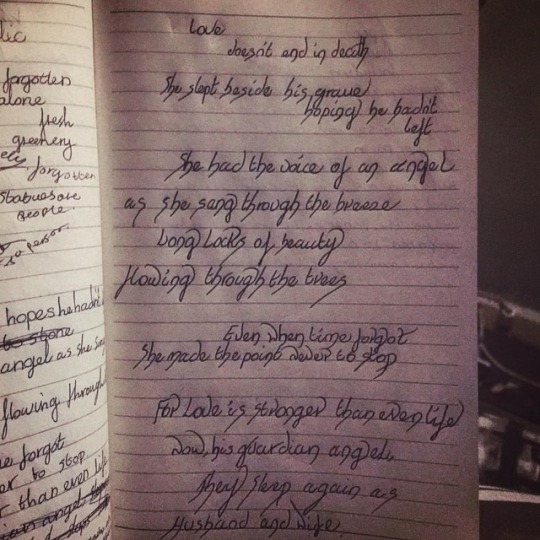 lic
forgotten
alone
fresh
greenery
forgotten
Statues are
people.
person
hopes he hadn't
to stone
angel as she san
flowing through
forgot
er to stop
r than even life
Love
doesn't end in death
She slept beside his grave
hoping he hadn't
left
She had the voice of an angel
as she sang through the breeze
Long locks of beauty
flowing through the trees
Even when time forgot
She made the point never to stop
For Love is stronger than even life
Now, his guardian angel,
They sleep again as
Husband and Wife.